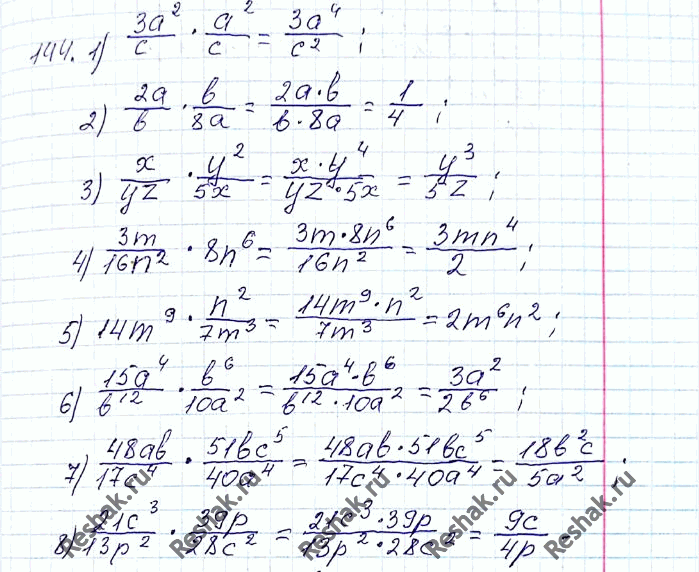 144. 1) 3a²/c · a²/c = 3a⁴/c² ;
2) 2a/в · в/8a = 2a·в/в·8a = 1/4 ;
3) x/yz · y²/5x = x·y⁴/yz·5x = y³/5z ;
4) 3m/16n² · 8n⁶ = 3m·8n⁶/16n² = 3mn⁴/2 ;
5) 14m⁹ · n²/7m³ = 14m⁹·n²/7m³ = 2m⁶n² ;
6) 15a⁴/в¹² · в⁶/10a² = 15a⁴·в⁶/в¹²·10a² = 3a²/2в⁶ ;
7) 48aв/17c⁴ · 51вc⁵/40a⁴ = 48aв·51вc⁵/17c⁴·40a⁴ = 18в²c/5a² ;
8) 21c³/13p² · 39p/28c² = 21c³·39p/13p²·28c² = 9c/4p
Reshak.ru Reshak.ru Reshak.ru Reshak.ru